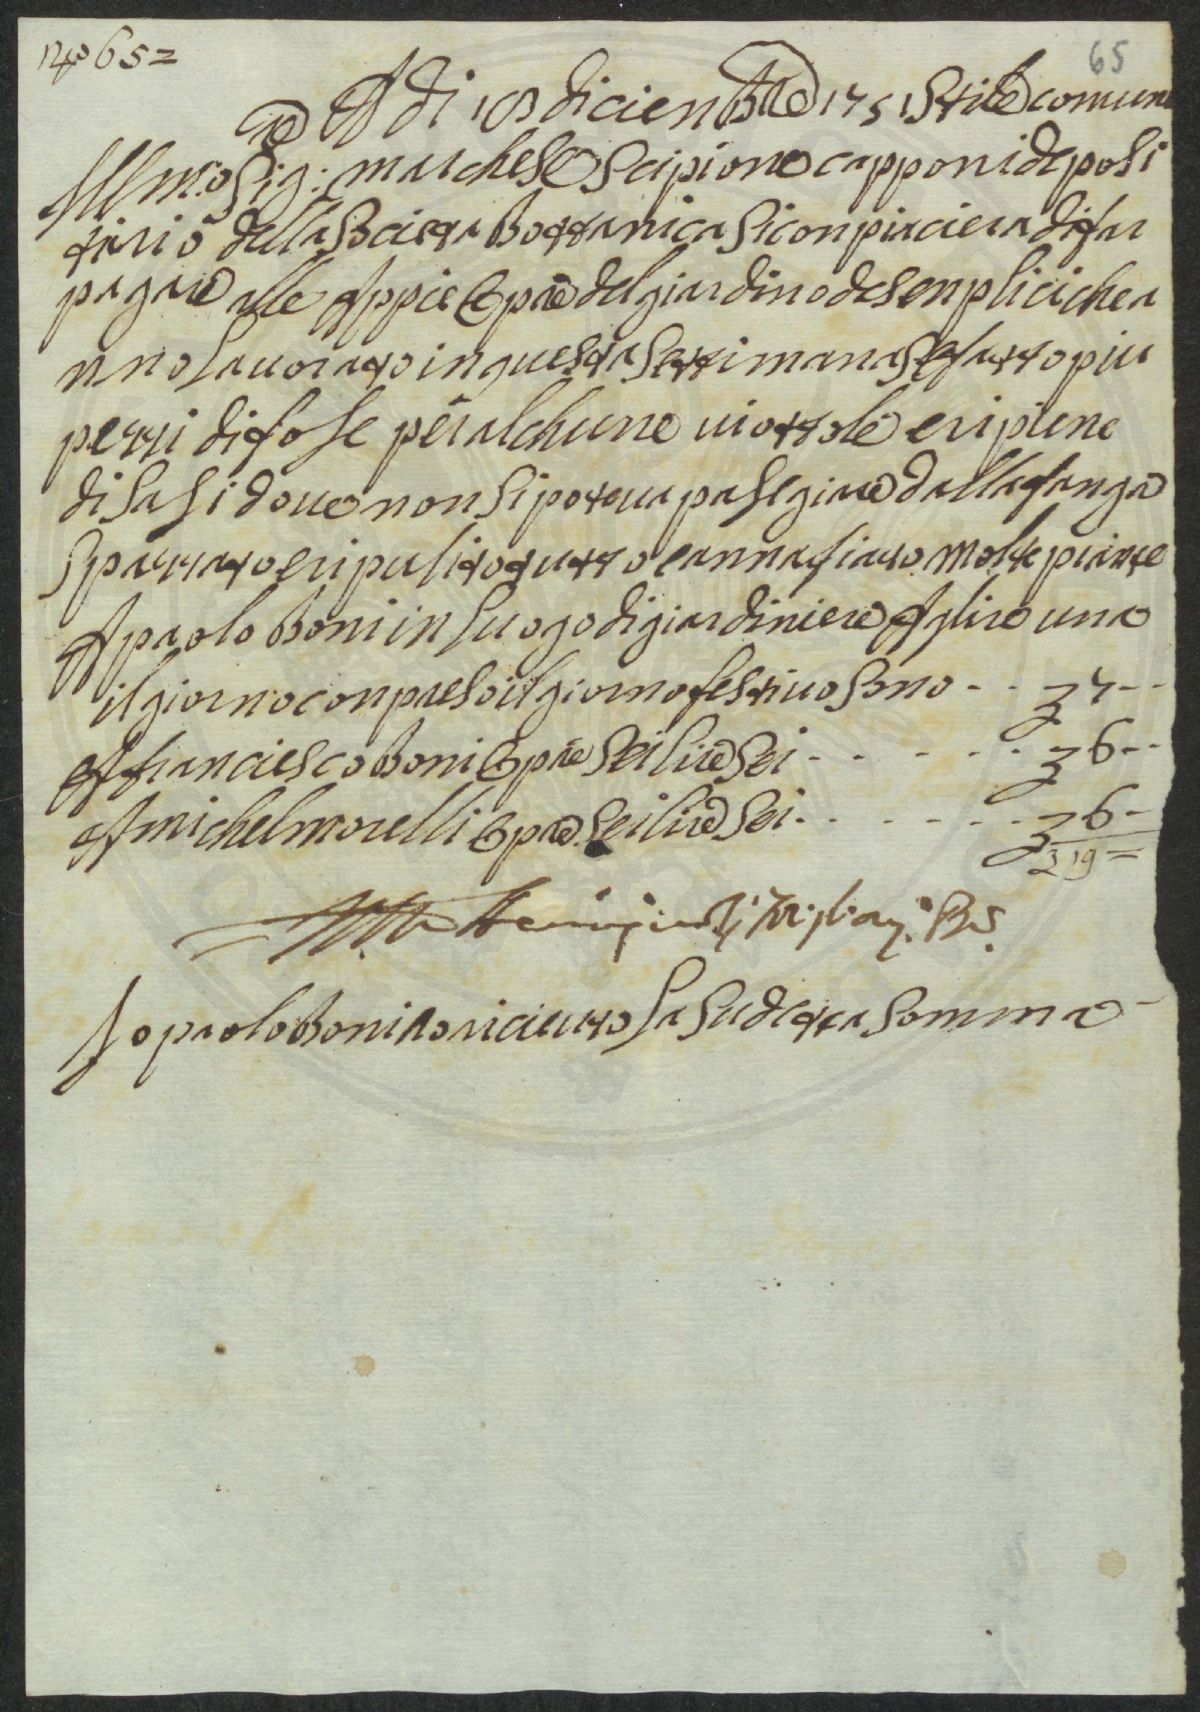 N.º 65=
65
A di 18 diciembre 1751 stile comune
Ill.mo Sig: marchese Scipione capponi deposi
tario della Societa Bottanica si conpiaciera di far
pagare alle Appie Opre del giardino de senplici che a
nno lavorato in questa settimana Se fatto piu
pezzi di fose per alchune viottole e ripiene
di sasi dove non si poteva pasegiare dalla fanga
Spazzato e ripulito tutto e annafiato molte piante
A paolo Boni in luogo di giardiniere A lire una
il giorno conpreso il giorno festivo sono - - 7 - -
A franciesco Boni Opre sei lire sei - - - - - - 6 - -
A michel morelli Opre sei lire sei - - - - - - 6 -
19 =
Io paolo Boni o riceuto la sudetta somma